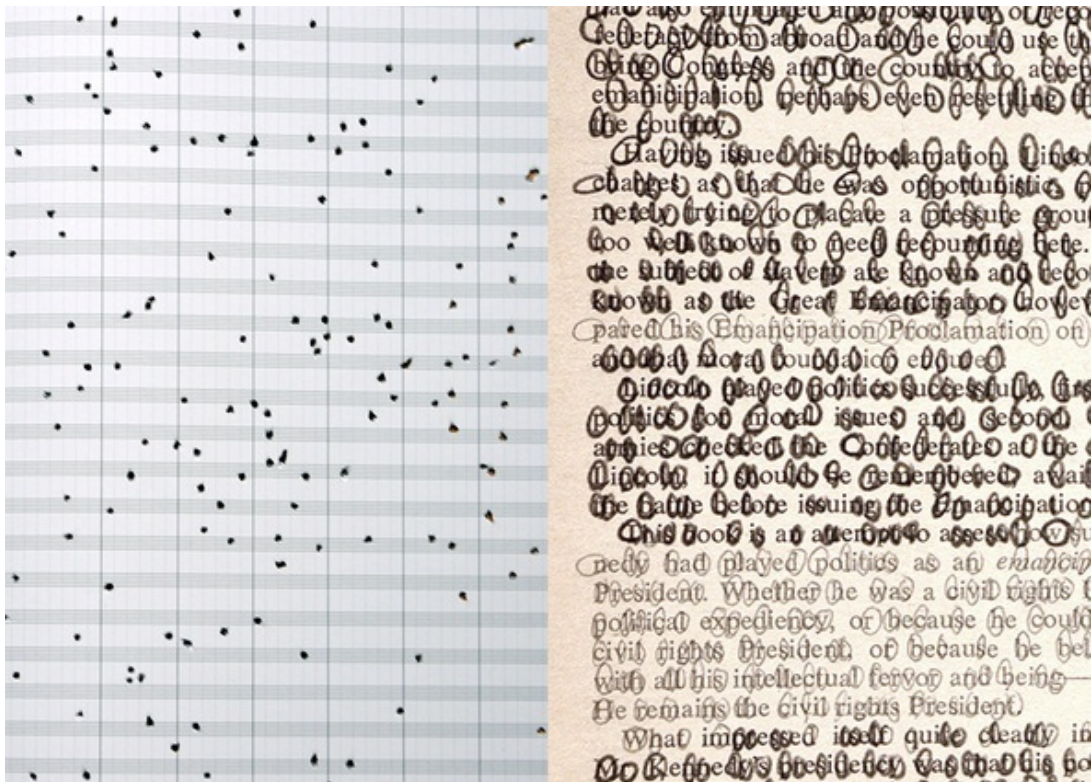 federacy from abroad and he could use th
Congress and the country to accep
emancipation, perhaps even resettling th
the country.
Having issued his Proclamation, Linco
changes as that he was opportunistic,
merely trying to placate a pressure grou
too well known to need recounting here.
the subject of slavery are known and reco
known as the Great Emancipator, howev
pared his Emancipation Proclamation on
and that moral foundation
Lincoln played politics successfully, first
politics for moral issues and, second,
armies checked the Confederates at the
Lincoln, it should be remembered, awai
the battle before issuing the Emancipation
This book is an attempt to assess how su
nedy had played politics as an emancip
President. Whether he was a civil rights
political expediency, or because he could
civil rights President, or because he bel
with all his intellectual fervor and being—
He remains the civil rights President.
What impressed itself quite clearly in
Mr. Kennedy's presidency was that his